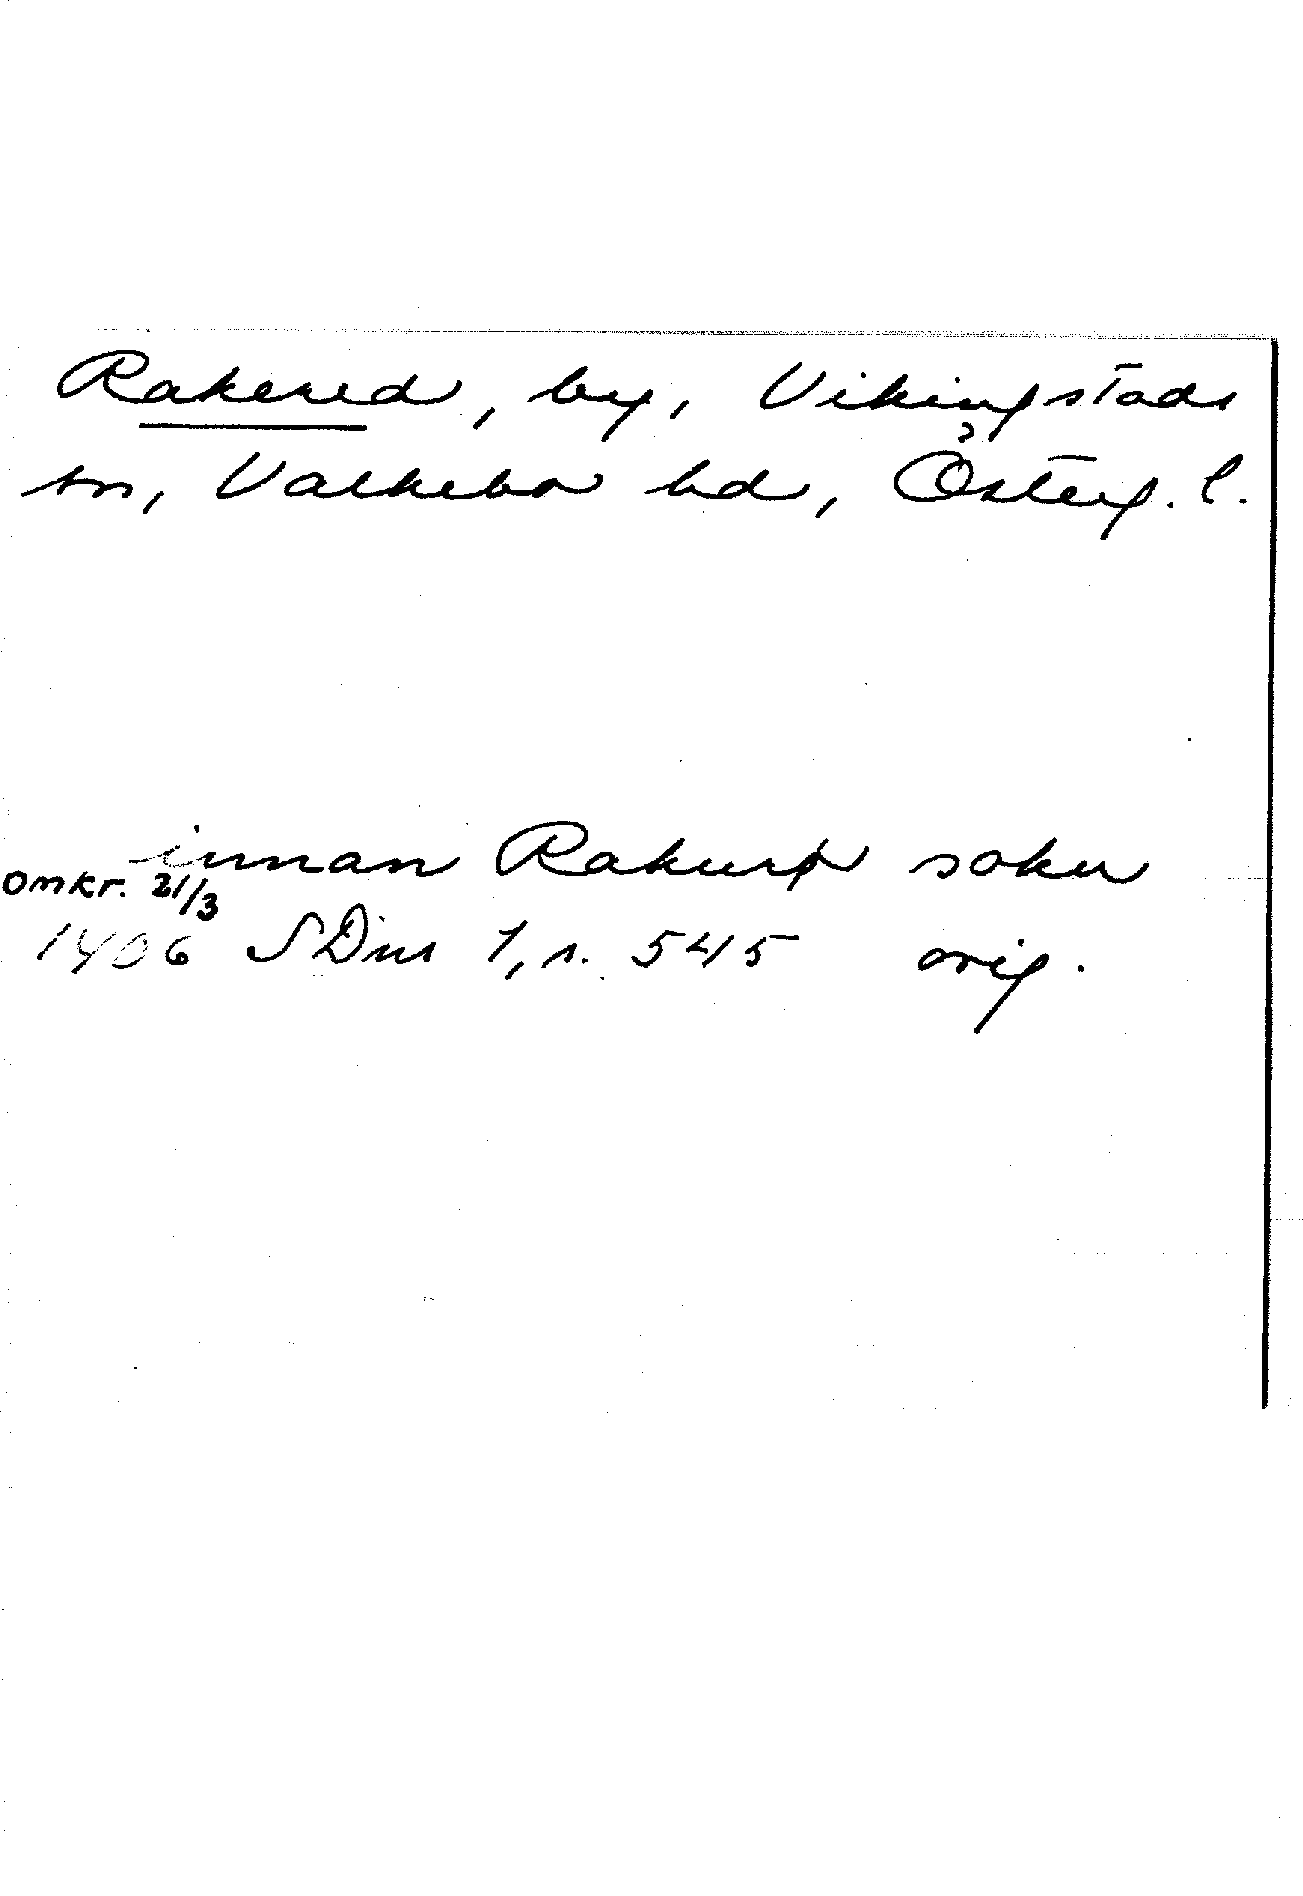 Rakered, by, Vikingstads
sn, Valkebo hd, Österg. l.
innan Rakurþ sokn
omkr. 21/3
1406 SDns 1, s. 545 orig.